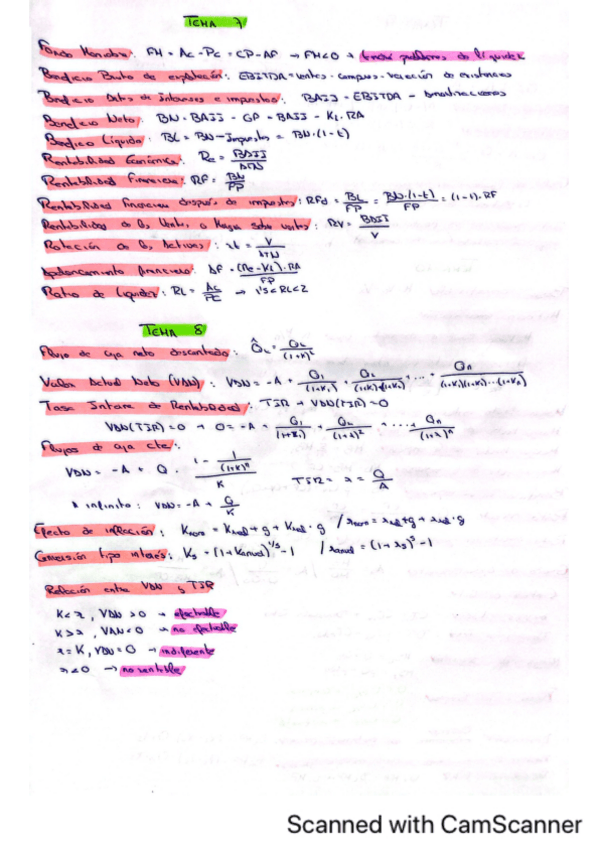 TEMA 7
Fondo Maniobra: FM = AC - PC = CP - AF → FM<0 → tener problemas de liquidez
Beneficio Bruto de explotación: EBITDA = ventas - compras - variación de existencias
Beneficio Antes de Intereses e impuestos: BAII = EBITDA - amortizaciones
Beneficio Neto: BN = BAII - GF = BAII - KL·RA
Beneficio Líquido: BL = BN - Impuestos = BN·(1-t)
Rentabilidad Económica: Re = BAII / ATN
Rentabilidad Financiera: RF = BN / FP
Rentabilidad financiera después de impuestos: RFd = BL / FP = BN·(1-t) / FP = (1-t)·RF
Rentabilidad de las Ventas o Margen sobre ventas: RV = BAII / V
Rotación de los Activos: = V / ATN
Apalancamiento financiero: AF = (Re - KL)·RA / FP
Ratio de liquidez: RL = AC / PC → 1'5<RL<2
TEMA 8
Flujo de caja neto descontado: Q̂k = Qk / (1+k)
Valor Actual Neto (VAN): VAN = -A + Q1 / (1+K1) + Q2 / (1+K1)(1+K2) + ... + Qn / (1+K1)(1+K2)...(1+Kn)
Tasa Interna de Rentabilidad: TIR → VAN(TIR)=0
VAN(TIR)=0 → 0 = -A + Q1 / (1+r) + Q2 / (1+r)² + ... + Qn / (1+r)ⁿ
Flujos de caja cte:
VAN = -A + Q · (1 - 1 / (1+K)ⁿ) / K TIR = r = Q / A
n infinito: VAN = -A + Q / K
Efecto de inflación: Knom = Kreal + g + Kreal · g / rnom = rreal + g + rreal · g
Conversión tipo interés: Ks = (1 + Kanual)^(1/s) - 1 / ranual = (1 + rs)^s - 1
Relación entre VAN y TIR
K<r, VAN>0 → efectuable
K>r, VAN<0 → no efectuable
r=K, VAN=0 → indiferente
r<0 → no rentable
Scanned with CamScanner